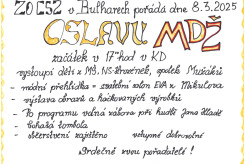 ZO ČSŽ v Bulharech pořádá dne 8.3.2025
OSLAVU MDŽ
začátek v 17 hod v KD
vystoupí děti z MŠ, NS Hrozének, spolek Mužáků
- módní přehlídka = svatební salon EVA z Mikulova
- výstava obrazů a háčkovaných výrobků
- Po programu volná zábava při hudbě Jana Hladě
- Bohatá tombola
- občerstvení zajištěno vstupné dobrovolné
Srdečně zvou pořadatelé!